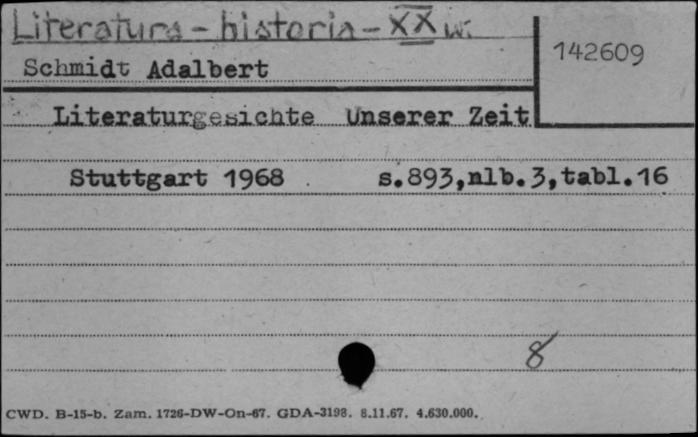 Literatura - historia - XX w.
142609
Schmidt Adalbert
Literaturgesichte Unserer Zeit
Stuttgart 1968 s.893,nlb.3,tabl.16
8
CWD. B-15-b. Zam. 1726-DW-On-67. GDA-3198. 8.11.67. 4.630.000.